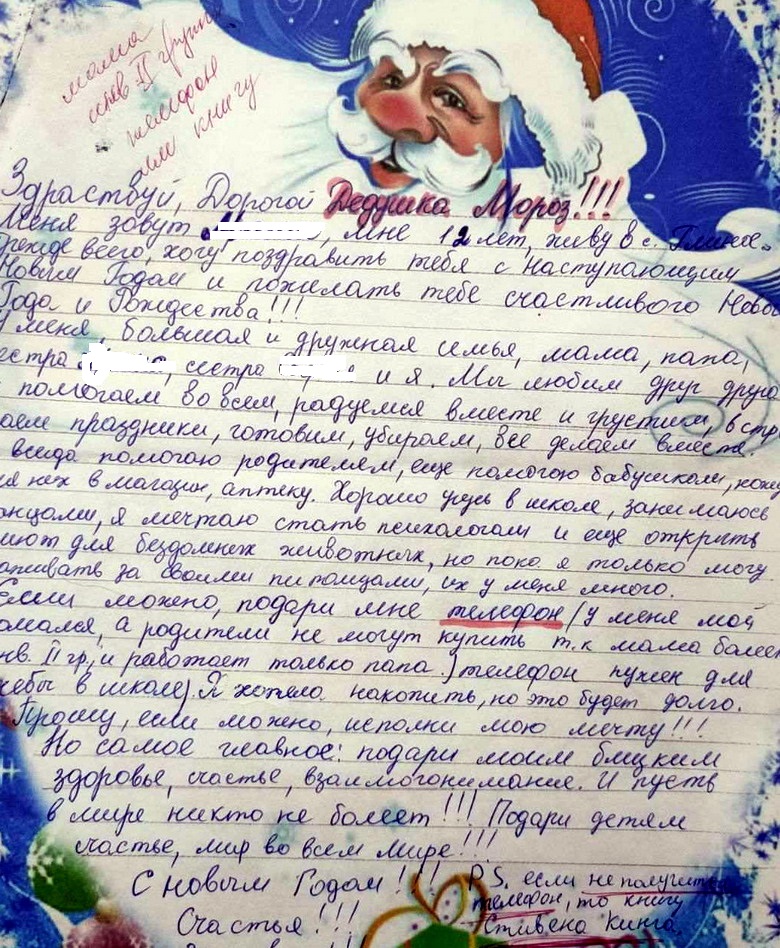 мама
инв II группы
телефон
или книгу
Здраствуй, Дорогой Дедушка Мороз!!!
Меня зовут , мне 12 лет, живу в с.
Прежде всего, хочу поздравить тебя с Наступающим
Новым Годом и пожелать тебе счастливого Нового
Года и Рождества!!!
У меня, большая и дружная семья, мама, папа,
естра , сестра и я. Мы любим друг друга
помогаем во всем, радуемся вместе и грустим, встр
аем праздники, готовим, убираем, все делаем вместе.
всегда помогаю родителям, еще помогаю бабушкам, хожу
ля них в магазин, аптеку. Хорошо учусь в школе, занимаюсь
анцами, я мечтаю стать психологом и еще открыть
иют для бездомных животных, но пока я только могу
аживать за своими питомцами, их у меня много.
Если можно, подари мне телефон (у меня мой
омался, а родители не могут купить т.к мама болеет
нв. II гр, и работает только папа.) телефон нужен для
чебы в школе). Я хотела накопить, но это будет долго.
Прошу, если можно, исполни мою мечту!!!
Но самое главное: подари моим близким
здоровье, счастье, взаимопонимание. И пусть
в мире никто не болеет!!! Подари детям
счастье, мир во всем мире!!!
С новым Годом!!!
Счастья!!!
P.S. если не получится
телефон, то книгу
Стивена Кинга.